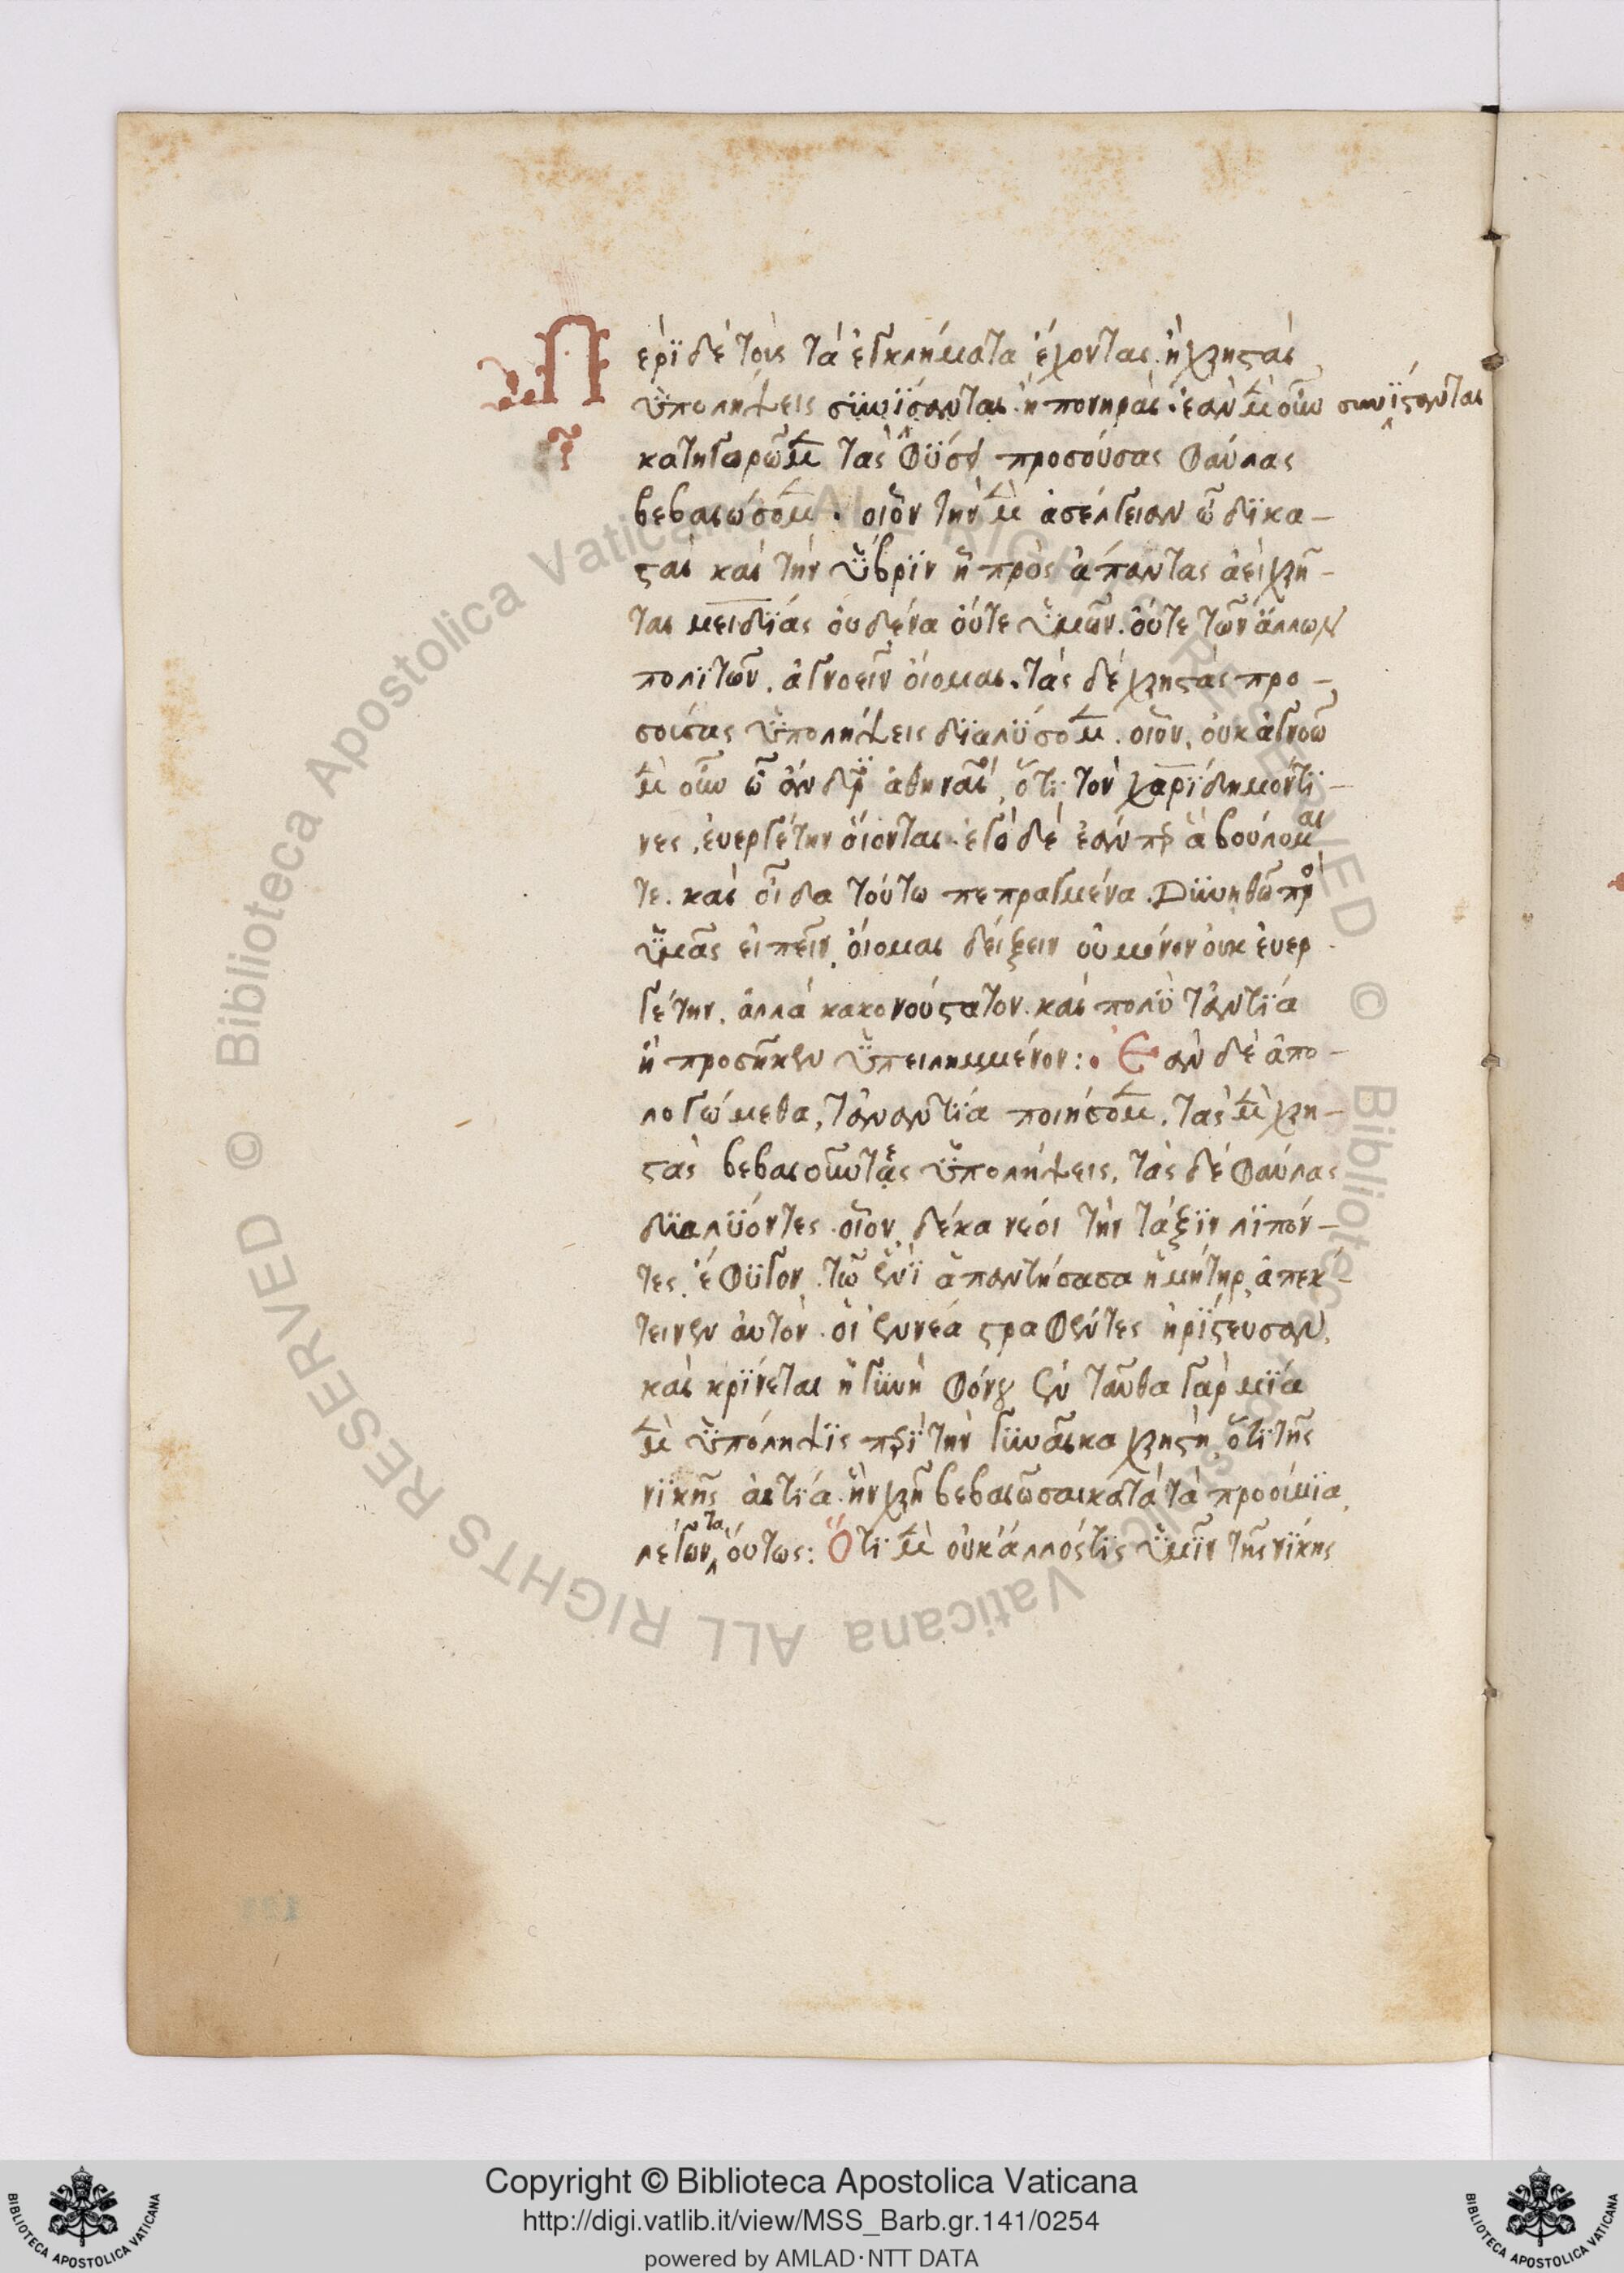 Περὶ δὲ τοὺς τὰ ἐγκλήματα ἔχοντας ἢ χρηστὰς
ὑπολήψεις συνίσανται ἢ πονηράς. ἐὰν μὲν οὖν συνίστανται
κατηγορῶμεν τὰς φύσει προσούσας φαύλας
βεβαιώσομεν. οἷον τὴν μὲν ἀσέλγειαν ὦ δικα-
σταὶ καὶ τὴν ὕβριν ᾗ πρὸς ἅπαντας ἀεὶ χρῆ-
ται μειδίας οὐδένα οὔτε ὑμῶν. οὔτε τῶν ἄλλων
πολιτῶν. ἀγνοεῖν οἴομαι. τὰς δὲ χρηστὰς προ-
σούσας ὑπολήψεις διαλύσομεν. οἷον, οὐκ ἀγνοῶ
μὲν οὖν ὦ ἄνδρες ἀθηναῖοι, ὅτι τὸν χαρίδημόν τι-
νες, εὐεργέτην οἴονται. ἐγὼ δὲ ἐάνπερ ἃ βούλομαι
τε. καὶ οἶδα τούτω πεπραγμένα. Δυνηθῶ πρὸς
ὑμᾶς εἰπεῖν, οἴομαι δείξειν οὐ μόνον οὐκ εὐερ
γέτην. ἀλλὰ κακονούστατον. καὶ πολὺ τἀντία
ἢ προσῆκεν ὑπειλημμένον: Ἐὰν δὲ ἀπο-
λογώμεθα, τἀναντία ποιήσομεν. τὰς μὲν χρη-
στὰς βεβαιοῦντες ὑπολήψεις, τὰς δὲ φαύλας
διαλύοντες. οἷον, δέκα νέοι τὴν τάξιν λιπόν-
τες, ἔφυγον. τῶ ἑνὶ ἀπαντήσασα ἡ μήτηρ, ἀπέκ-
τεινεν αὐτόν. οἱ ἐννέα στραφέντες ἠρίστευσαν,
καὶ κρίνεται ἡ γυνὴ φόνου ἐνταῦθα γὰρ μία
μὲν ὑπόληψις περὶ τὴν γυναῖκα χρηστή, ὅτι τῆς
νίκης αἰτία. ἣν χρῆ βεβαιῶσαι κατὰ τὰ προοίμια
λέγοντα οὕτως: Ὅτι μὲν οὐκ ἄλλός τις ὑμῖν τῆς νίκης
Copyright © Biblioteca Apostolica Vaticana
http://digi.vatlib.it/view/MSS_Barb.gr.141/0254
powered by AMLAD·NTT DATA
BIBLIOTECA APOSTOLICA VATICANA
BIBLIOTECA APOSTOLICA VATICANA
© Biblioteca Apostolica Vaticana ALL RIGHTS RESERVED © Biblioteca Apostolica Vaticana ALL RIGHTS RESERVED